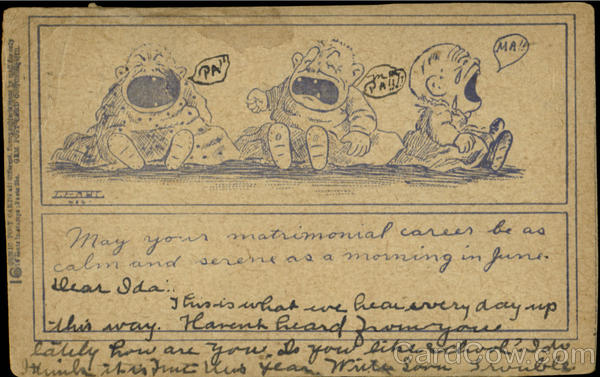 PA"
MA PA!!
MA!!
May your matrimonial career be as
calm and serene as a morning in June.
Dear Ida:
This is what we hear every day up
this way. Havent heard from you
lately how are you. Do you like school I do
I think this first this year. Write Soon
CardCow.com